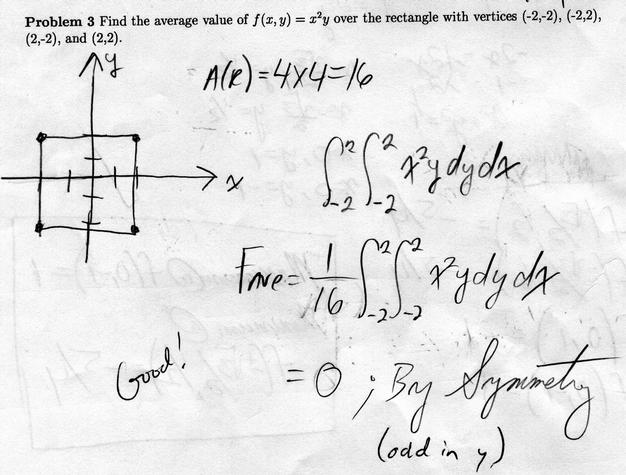 Problem 3 Find the average value of f(x, y) = x²y over the rectangle with vertices (-2,-2), (-2,2),
(2,-2), and (2,2).
y
A(R) = 4x4=16
x
∫₋₂² ∫₋₂² x²y dy dx
Fave = 1/16 ∫₋₂² ∫₋₂² x²y dy dx
Good!
= 0 ; By Symmetry
(odd in y)